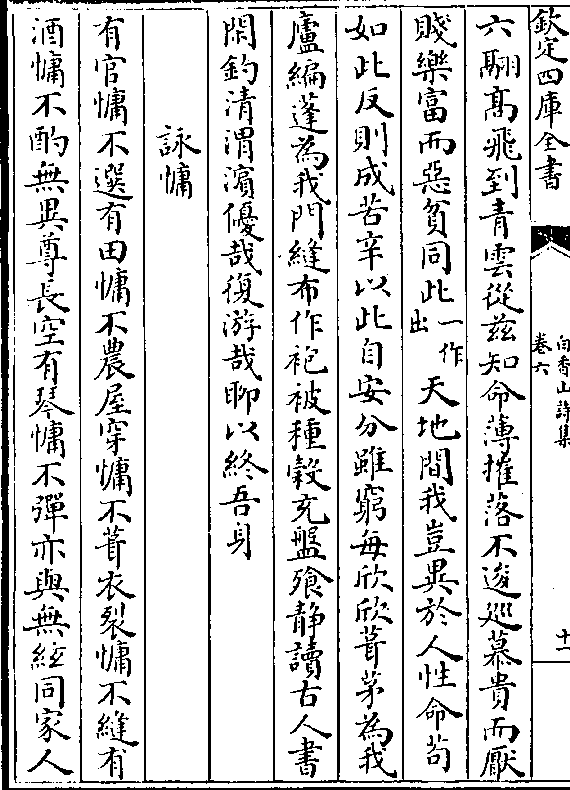 欽定四庫全書
白香山詩集
卷六
十一
六翮髙飛到青雲從兹知命薄摧落不逡巡慕貴而厭
賤樂富而惡貧同此一作出天地間我豈異於人性命苟
如此反則成苦辛以此自安分雖窮每欣欣葺茅為我
廬編蓬為我門縫布作袍被種穀充盤飱静讀古人書
閑釣清渭濱優哉復游哉聊以終吾身
詠慵
有官慵不選有田慵不農屋穿慵不葺衣裂慵不縫有
酒慵不酌無異尊長空有琴慵不彈亦與無絃同家人